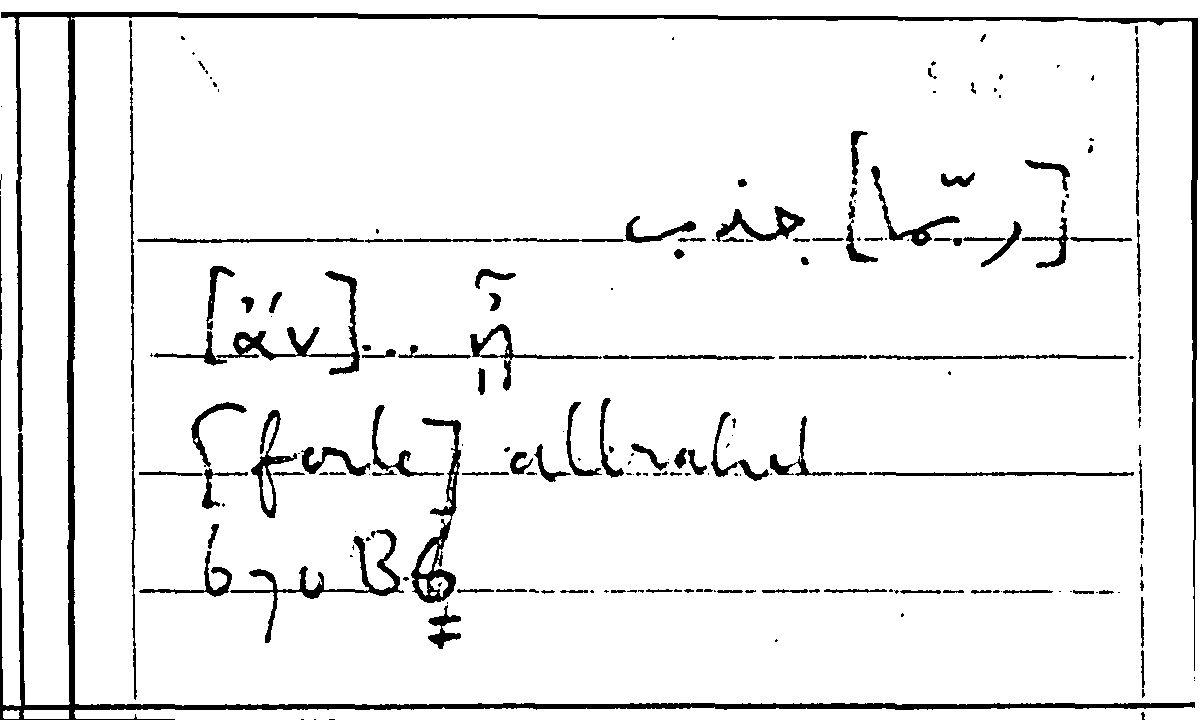 [ربّما] جذب
[ἄν]... ᾖ
[forte] attrahit
670 B 6